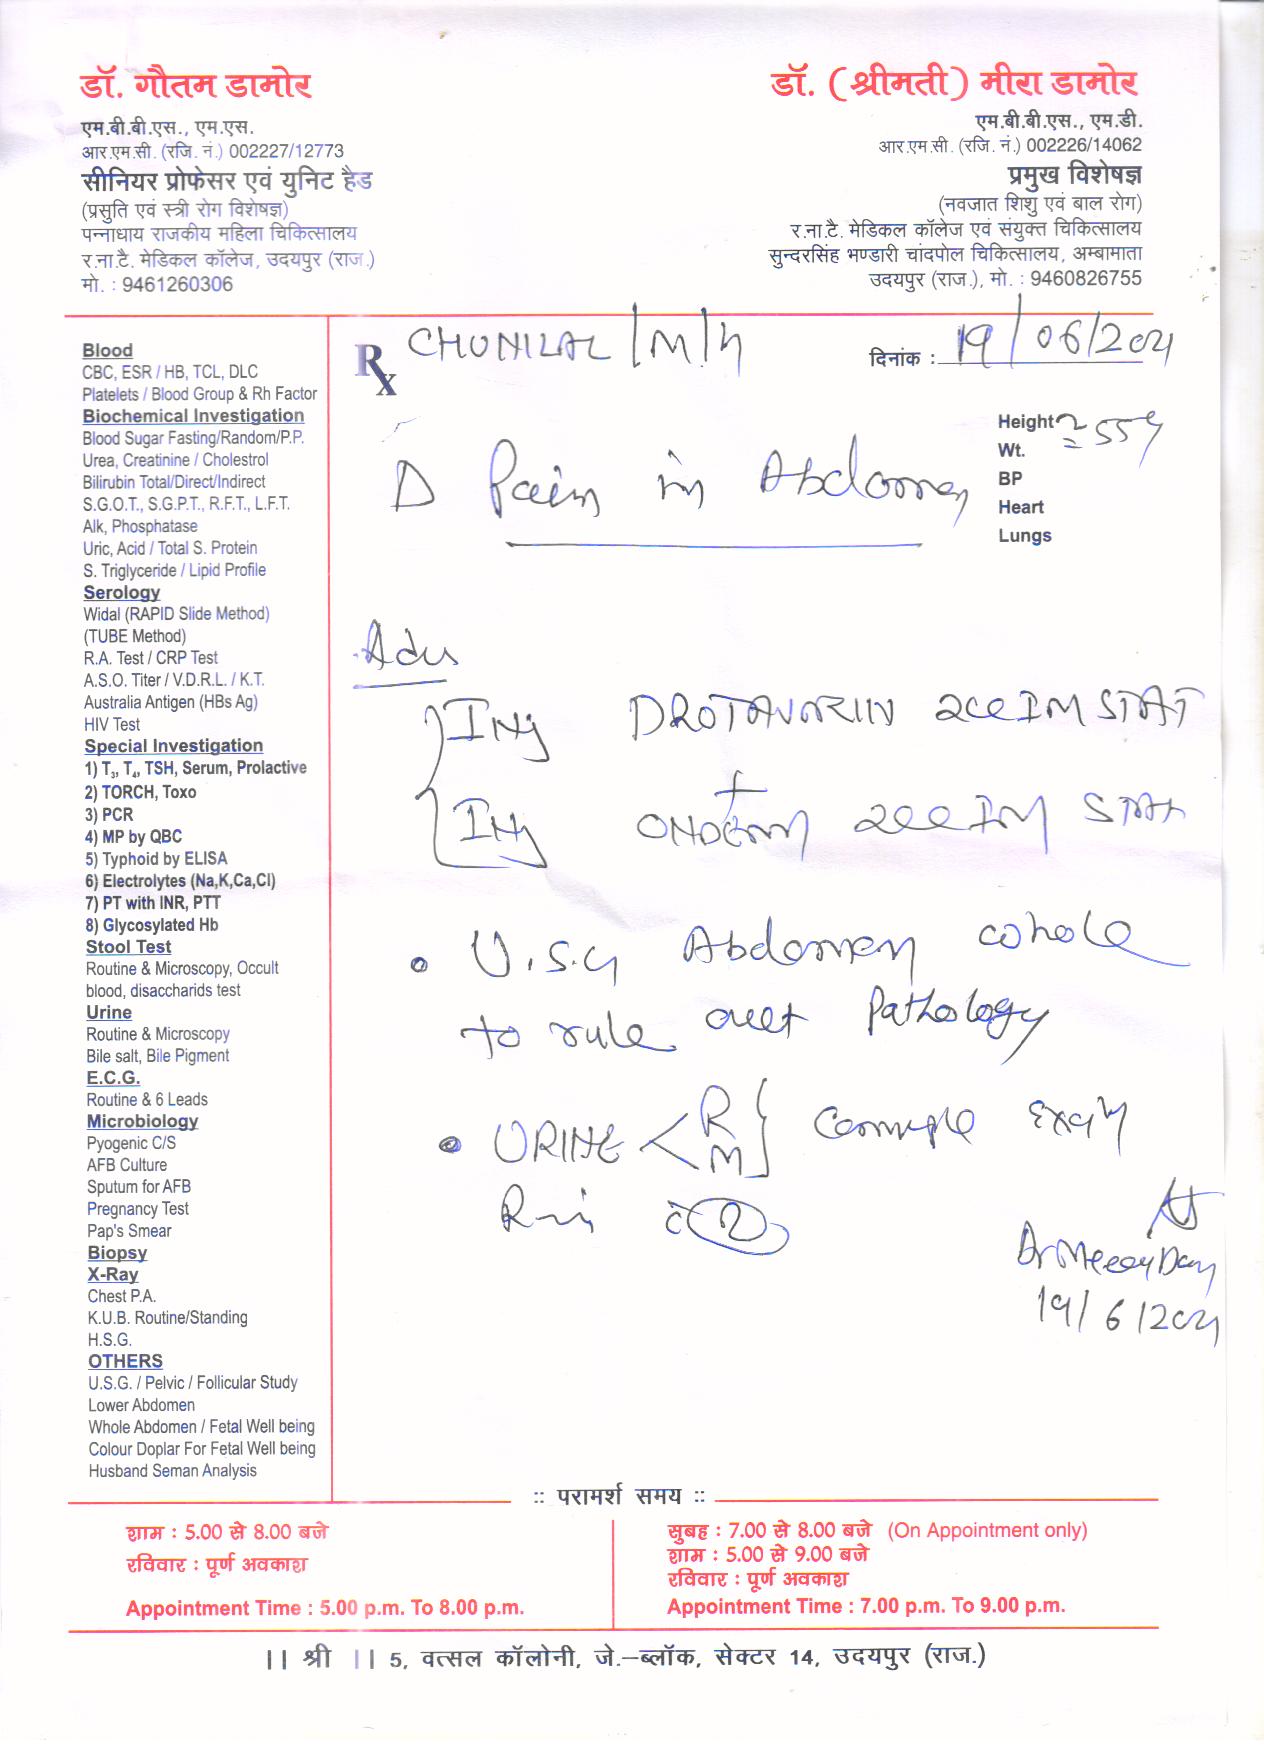 डॉ. गौतम डामोर
एम.बी.बी.एस., एम.एस.
आर.एम.सी. (रजि. नं.) 002227/12773
सीनियर प्रोफेसर एवं युनिट हैड
(प्रसुति एवं स्त्री रोग विशेषज्ञ)
पन्नाधाय राजकीय महिला चिकित्सालय
र.ना.टै. मेडिकल कॉलेज, उदयपुर (राज.)
मो. : 9461260306
डॉ. (श्रीमती) मीरा डामोर
एम.बी.बी.एस., एम.डी.
आर.एम.सी. (रजि. नं.) 002226/14062
प्रमुख विशेषज्ञ
(नवजात शिशु एवं बाल रोग)
र.ना.टै. मेडिकल कॉलेज एवं संयुक्त चिकित्सालय
सुन्दरसिंह भण्डारी चांदपोल चिकित्सालय, अम्बामाता
उदयपुर (राज.), मो. : 9460826755
Blood
CBC, ESR / HB, TCL, DLC
Platelets / Blood Group & Rh Factor
Biochemical Investigation
Blood Sugar Fasting/Random/P.P.
Urea, Creatinine / Cholestrol
Bilirubin Total/Direct/Indirect
S.G.O.T., S.G.P.T., R.F.T., L.F.T.
Alk, Phosphatase
Uric, Acid / Total S. Protein
S. Triglyceride / Lipid Profile
Serology
Widal (RAPID Slide Method)
(TUBE Method)
R.A. Test / CRP Test
A.S.O. Titer / V.D.R.L. / K.T.
Australia Antigen (HBs Ag)
HIV Test
Special Investigation
1) T3, T4, TSH, Serum, Prolactive
2) TORCH, Toxo
3) PCR
4) MP by QBC
5) Typhoid by ELISA
6) Electrolytes (Na,K,Ca,Cl)
7) PT with INR, PTT
8) Glycosylated Hb
Stool Test
Routine & Microscopy, Occult
blood, disaccharids test
Urine
Routine & Microscopy
Bile salt, Bile Pigment
E.C.G.
Routine & 6 Leads
Microbiology
Pyogenic C/S
AFB Culture
Sputum for AFB
Pregnancy Test
Pap's Smear
Biopsy
X-Ray
Chest P.A.
K.U.B. Routine/Standing
H.S.G.
OTHERS
U.S.G. / Pelvic / Follicular Study
Lower Abdomen
Whole Abdomen / Fetal Well being
Colour Doplar For Fetal Well being
Husband Seman Analysis
Rx CHUNILAL /M/
दिनांक : 19/06/2021
Height
Wt.
BP
Heart
Lungs
Pain in Abdomen
Adv
Inj DROTAVARIN 2CC IM STAT
+
Inj ONDEM 2CC IM STAT
• U.S.G Abdomen whole
to rule out Pathology
• URINE < R M } Comple Exam
19/6/2021
:: परामर्श समय ::
शाम : 5.00 से 8.00 बजे
रविवार : पूर्ण अवकाश
Appointment Time : 5.00 p.m. To 8.00 p.m.
सुबह : 7.00 से 8.00 बजे (On Appointment only)
शाम : 5.00 से 9.00 बजे
रविवार : पूर्ण अवकाश
Appointment Time : 7.00 p.m. To 9.00 p.m.
|| श्री || 5, वत्सल कॉलोनी, जे.–ब्लॉक, सेक्टर 14, उदयपुर (राज.)